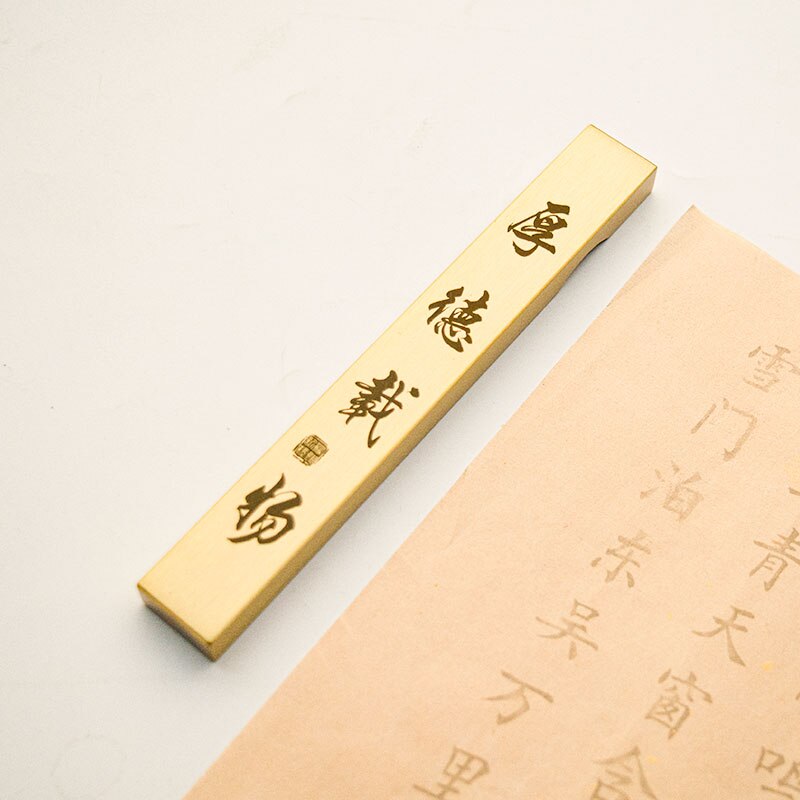 厚德载物
青天窗含
雪门泊东吴万里